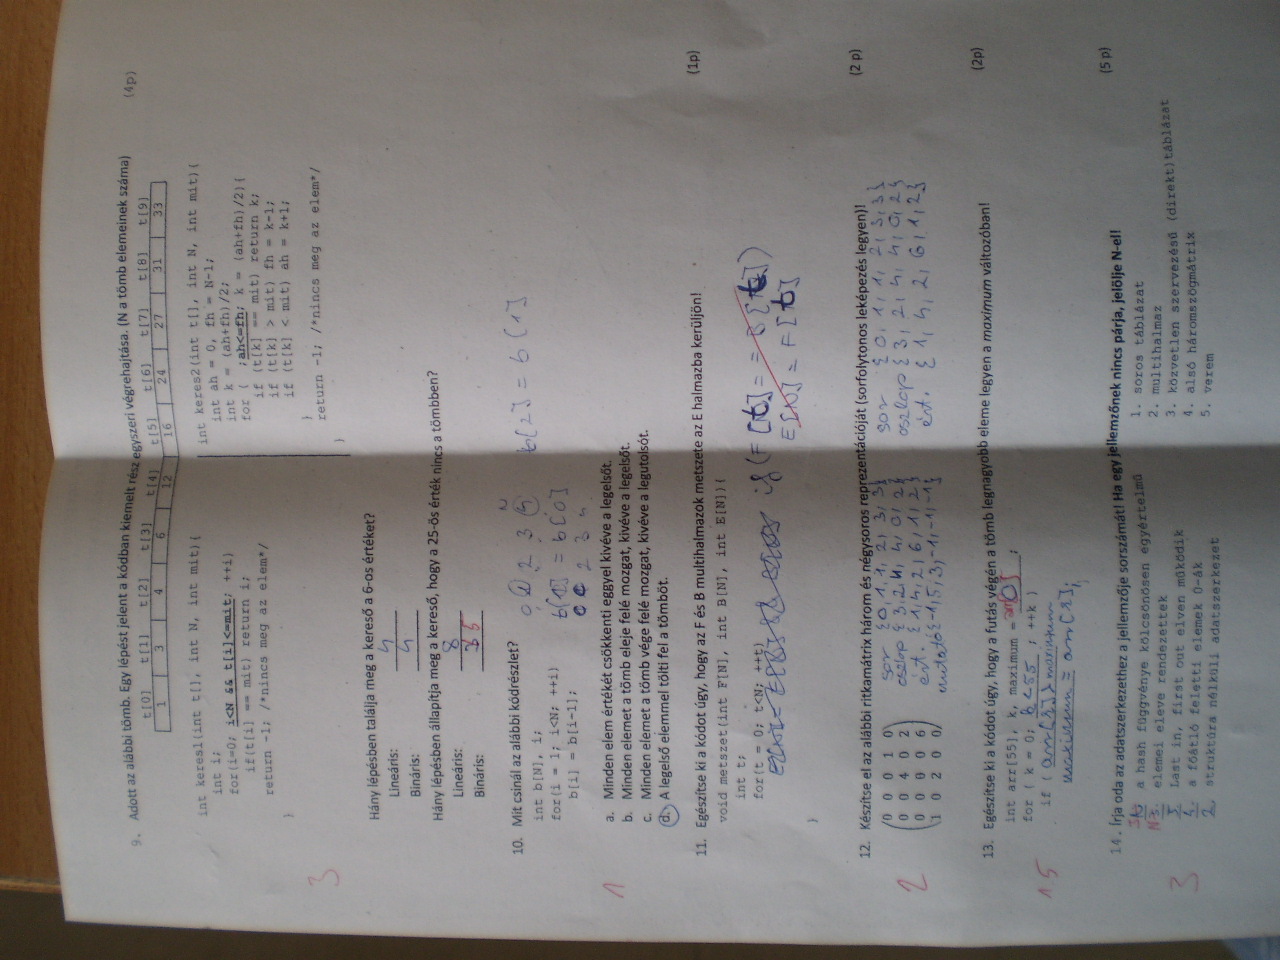 9. Adott az alábbi tömb. Egy lépést jelent a kódban kiemelt rész egyszeri végrehajtása. (N a tömb elemeinek száma) (4p)
t[0] t[1] t[2] t[3] t[4] t[5] t[6] t[7] t[8] t[9]
1 3 4 6 12 16 24 27 31 33
int keres1(int t[], int N, int mit){
int i;
for(i=0; i<N && t[i]<=mit; ++i)
if(t[i] == mit) return i;
return -1; /*nincs meg az elem*/
}
int keres2(int t[], int N, int mit){
int ah = 0, fh = N-1;
int k = (ah+fh)/2;
for ( ;ah<=fh; k = (ah+fh)/2){
if (t[k] == mit) return k;
if (t[k] > mit) fh = k-1;
if (t[k] < mit) ah = k+1;
}
return -1; /*nincs meg az elem*/
}
3
Hány lépésben találja meg a kereső a 6-os értéket?
Lineáris: 4
Bináris: 4
Hány lépésben állapítja meg a kereső, hogy a 25-ös érték nincs a tömbben?
Lineáris: 8
Bináris:
10. Mit csinál az alábbi kódrészlet?
int b[N], i;
for(i = 1; i<N; ++i)
b[i] = b[i-1];
b[1] = b[0]
b[2] = b[1]
a. Minden elem értékét csökkenti eggyel kivéve a legelsőt.
b. Minden elemet a tömb eleje felé mozgat, kivéve a legelsőt.
c. Minden elemet a tömb vége felé mozgat, kivéve a legutolsót.
d. A legelső elemmel tölti fel a tömböt.
1
11. Egészítse ki a kódot úgy, hogy az F és B multihalmazok metszete az E halmazba kerüljön! (1p)
void metszet(int F[N], int B[N], int E[N]){
int t;
for(t = 0; t<N; ++t)
if (F[t] == B[t])
E[t] = F[t]
}
12. Készítse el az alábbi ritkamátrix három és négysoros reprezentációját (sorfolytonos leképezés legyen)! (2 p)
0 0 0 1 0
0 0 4 0 2
0 0 0 0 6
1 0 2 0 0
sor {0,1,1,2,3,3}
oszlop {3,2,4,4,0,2}
ért. {1,4,2,6,1,2}
mutató {-1,5,3,-1,-1,-1}
sor {0,1,1,2,3,3}
oszlop {3,2,4,4,0,2}
ért. {1,4,2,6,1,2}
2
13. Egészítse ki a kódot úgy, hogy a futás végén a tömb legnagyobb eleme legyen a maximum változóban! (2p)
int arr[55], k, maximum = ;
for ( k = 0; k<55 ; ++k )
if ( arr[k] > maximum
maximum = arr[k];
1.5
14. Írja oda az adatszerkezethez a jellemzője sorszámát! Ha egy jellemzőnek nincs párja, jelölje N-el! (5 p)
a hash függvénye kölcsönösen egyértelmű
elemei eleve rendezettek
5. Last in, first out elven működik
4. a főátló feletti elemek 0-ák
2. struktúra nélküli adatszerkezet
1. soros táblázat
2. multihalmaz
3. közvetlen szervezésű (direkt)táblázat
4. alsó háromszögmátrix
5. verem
3